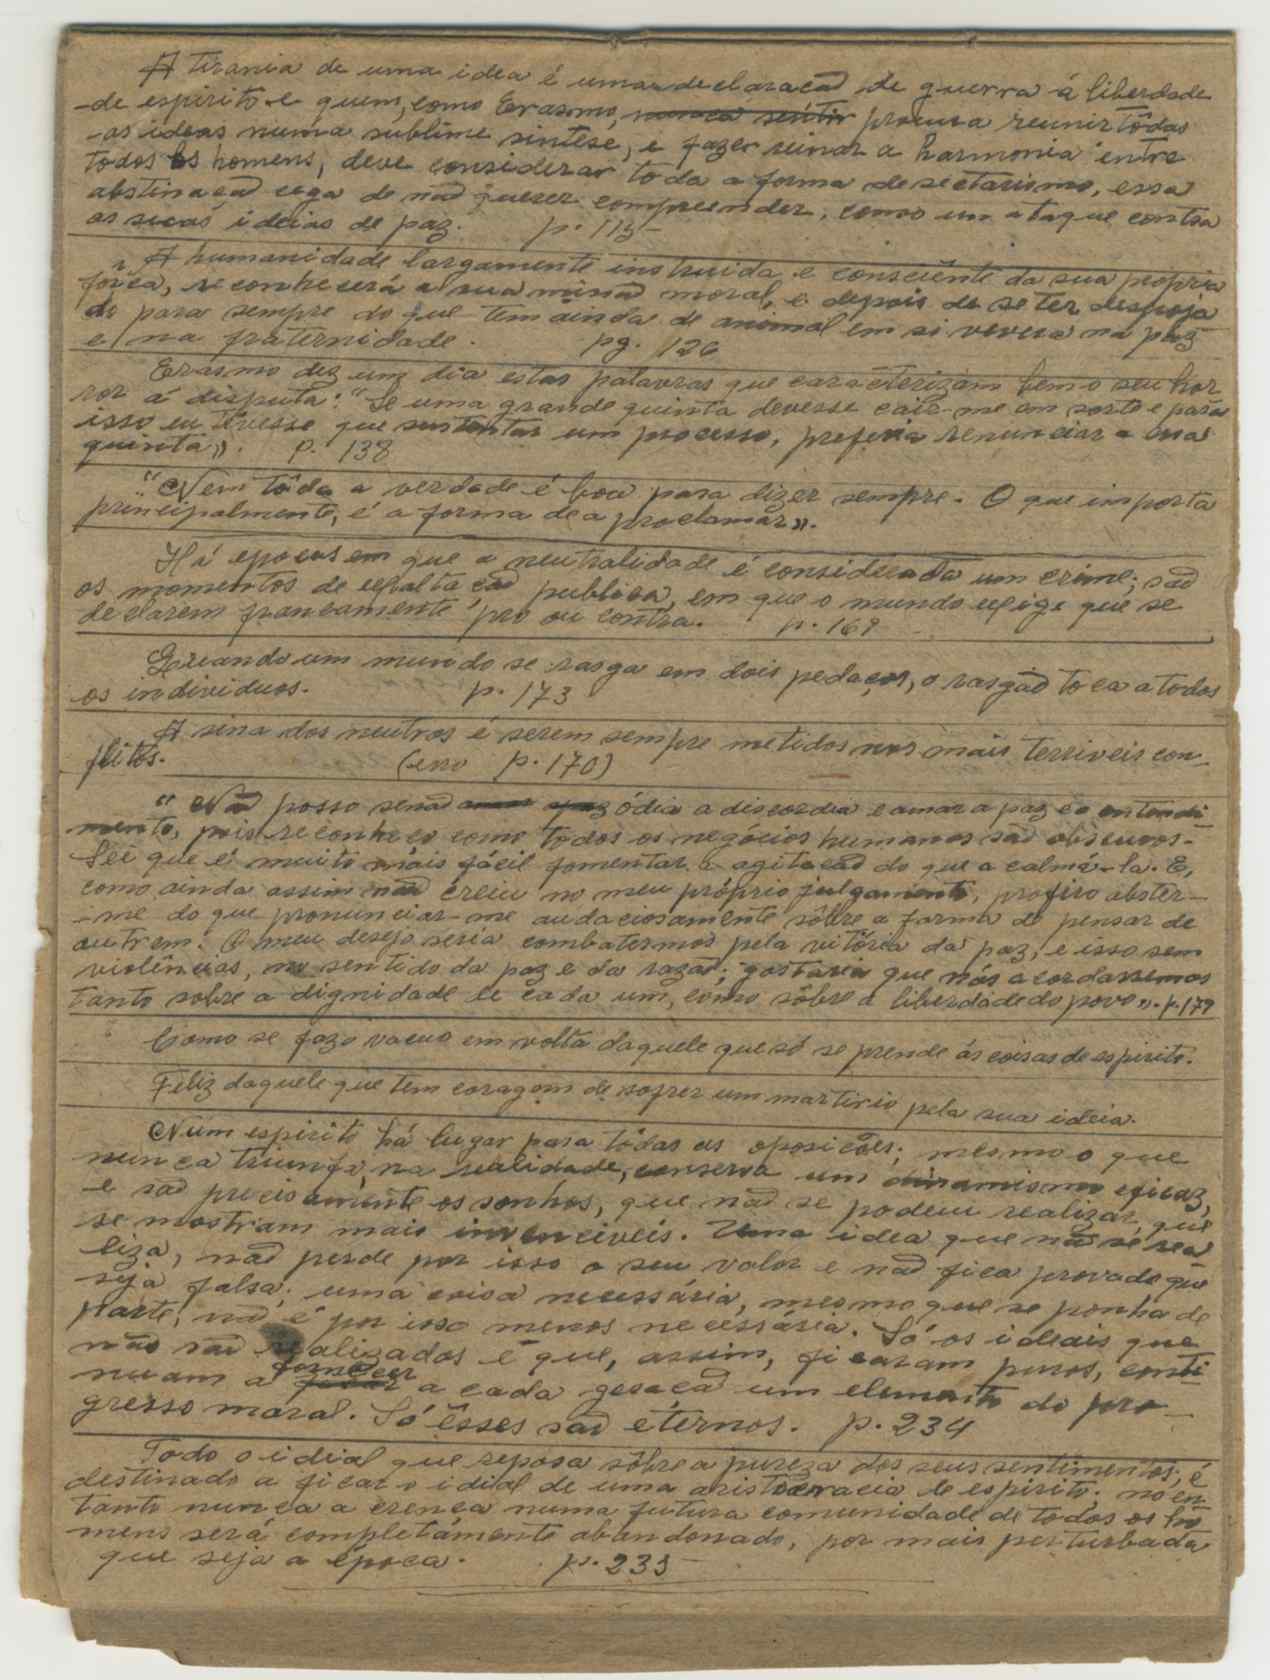 A tirania de uma idea é uma declaracão de guerra á liberdade
de espirito e quem, como Erasmo, nunca sentir procura reunir tôdas
as ideas numa sublime sintese, e fazer reinar a harmonia entre
todos os homens, deve considerar toda a forma de sectarismo, essa
abstinacão cega de não querer compreender, como um ataque contra
as suas ideias de paz. p. 115-
A humanidade largamente instruida e consciênte da sua propria
fôrça, reconhecerá a sua missão moral, e depois de se ter despoja
do para sempre do que tem ainda de animal em si vivera na paz
e na fraternidade. pg. 126
Erasmo diz um dia estas palavras que caracterizam bem o seu hor
ror á disputa: "Se uma grande quinta devesse cair-me em sorte e para
isso eu tivesse que sustentar um processo, preferia renunciar a essa
quinta». p. 138
"Nem tôda a verdade é boa para dizer sempre. O que importa
principalmente, é a forma de a proclamar».
Há epocas em que a neutralidade é considerada um crime; são
os momentos de exaltacão publica, em que o mundo exige que se
declarem francamente pro ou contra. p. 169
Quando um mundo se rasga em dois pedaços, o rasgão toca a todos
os individuos. p. 173
A sina dos neutros é serem sempre metidos nos mais terriveis con-
flitos. (erro p. 170)
"Não posso senão amar a paz ódia a discordia e amar a paz e o entendi
mento, pois reconheco como todos os negócios humanos são obscuros-
Sei que é muito mais fácil fomentar a agitacão do que a calmá-la. E,
como ainda assim não creiu no meu próprio julgamento, prefiro abster-
-me do que pronunciar-me audaciosamente sôbre a forma de pensar de
outrem. O meu desejo seria combatermos pela vitória da paz, e isso sem
violências, no sentido da paz e da razão; gostaria que nós acordassemos
tanto sobre a dignidade de cada um, como sôbre a liberdade do povo». p. 179
Como se faz o vacuo em volta daquele que só se prende ás coisas de espirito.
Feliz daquele que tem coragem de sofrer um martirio pela sua ideia.
Num espirito há lugar para tôdas as oposicões; mesmo o que
nunca triunfa, na realidade, conserva um dinamismo eficaz,
e são precisamente os sonhos, que não se podem realizar, que
se mostram mais invenciveis. Uma idea que não se rea
liza, não perde por isso o seu valor e não fica provado que
seja falsa; uma coisa necessária, mesmo que se ponha de
parte, não é por isso menos necessária. Só os ideais que
não são realizados é que, assim, ficaram puros, conti
nuam a fornecer a cada geracão um elemento do pro-
gresso moral. Só êsses são eternos. p. 234
Todo o idial que reposa sôbre a pureza dos seus sentimentos, é
destinado a ficar o idial de uma aristocracia de espirito; no en
tanto nunca a crenca numa futura comunidade de todos os ho
mens será completamente abandonado, por mais perturbada
que seja a época. p. 235